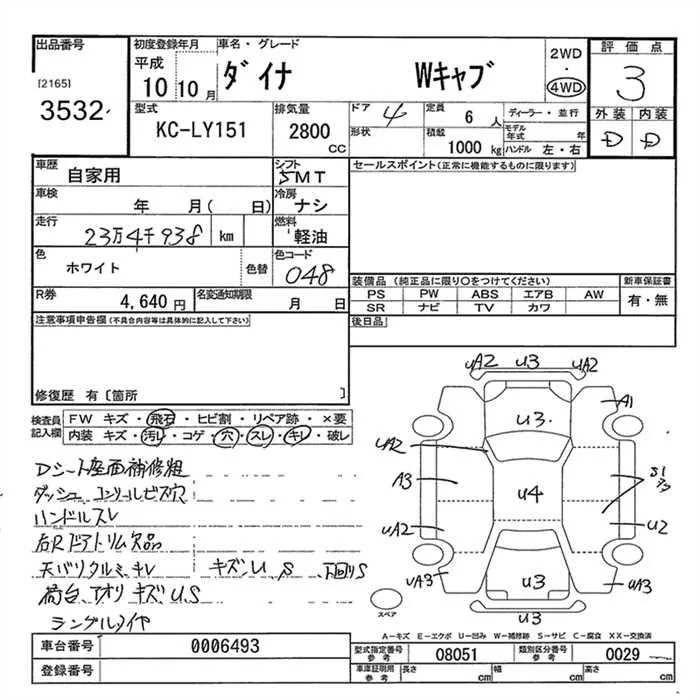 出品番号 初度登録年月 車名・グレード 2WD 評価点
[2165] 平成 ダイナ Wキャブ ・ 3
3532 10 10月 4WD
型式 排気量 ドア 4 定員 6 人 ディーラー・並行 外装 内装
KC-LY151 2800 CC 形状 積載 1000 kg モデル年式 年 D D
ハンドル 左・右
車歴 自家用 シフト 5MT セールスポイント(正常に機能するものに限ります)
車検 年 月( 日) 冷房 ナシ
走行 23万4千938 km 燃料 軽油
色 ホワイト 色替 色コード 048
装備品 (純正品に限り○をつけてください) 新車保証書
R券 4,640円 名変通知期限 月 日 PS PW ABS エアB AW 有・無
SR ナビ TV カワ
注意事項申告欄(不具合内容等は具体的に記入して下さい) 後日品
修復歴 有〔箇所 〕
検査員記入欄 FW キズ・飛石・ヒビ割・リペア跡・×要
内装 キズ・汚レ・コゲ・穴・スレ・キレ・破レ
Dシート座面補修粗
ダッシュ、コンソールビス穴
ハンドルスレ
右Rドアトリム欠品
天バリクルミ、キレ キズ、U、S 下回りS
荷台、アオリ キズ U.S
ラングルタイヤ
UA2 U3 UA2
A1
U3
UA2
A3 U4 S1
UA2 U2
UA3 U3 UA3
U3
スペア
A-キズ E-エクボ U-凹み W-補修跡 S-サビ C-腐食 XX-交換済
車台番号 0006493 型式指定番号 参考 08051 類別区分番号 参考 0029
登録番号 車庫証明用 参考 長さ cm 幅 cm 高さ cm